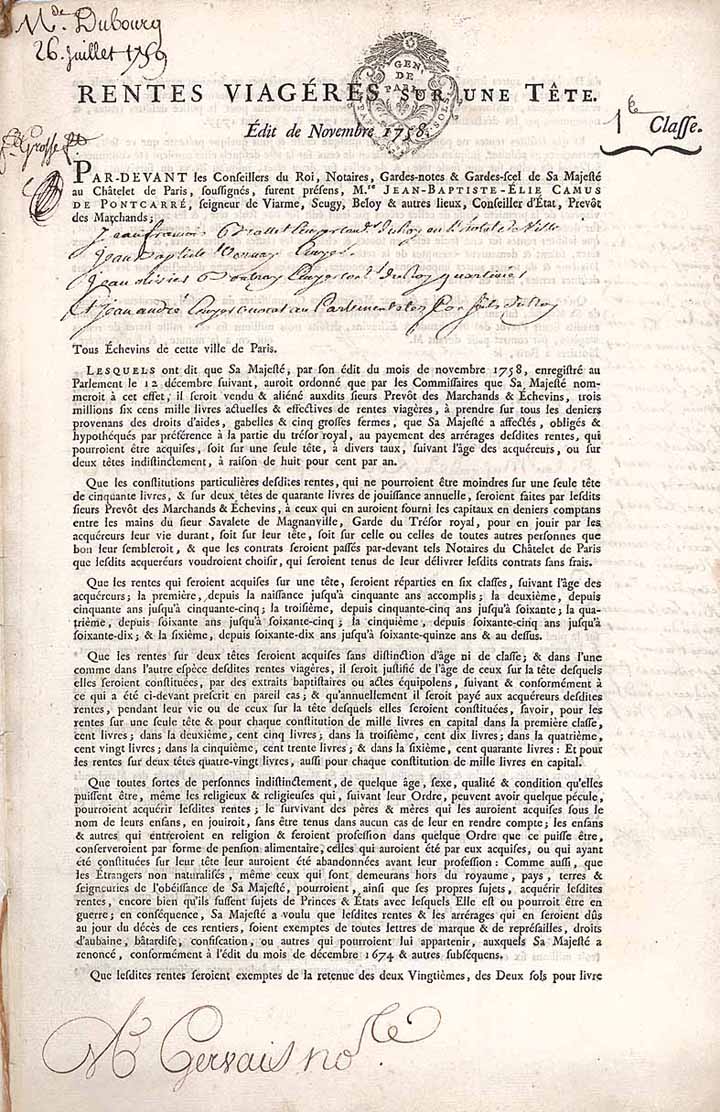 M.de Dubourg
26. Juillet 1759
GEN. DE PARIS
RENTES VIAGÉRES SUR UNE TÊTE.
Édit de Novembre 1758.
1.re Classe.
Grosse
PAR-DEVANT les Conseillers du Roi, Notaires, Gardes-notes & Gardes-scel de Sa Majesté
au Châtelet de Paris, soussignés, furent présens, M.re JEAN-BAPTISTE-ÉLIE CAMUS
DE PONTCARRÉ, seigneur de Viarme, Seugy, Beloy & autres lieux, Conseiller d'État, Prevôt
des Marchands;
Jean
Jean Baptiste Vernay Ecuyer
Jean olivier Boutray Ecuyer quartinier
Et Jean andré
Tous Échevins de cette ville de Paris.
LESQUELS ont dit que Sa Majesté, par son édit du mois de novembre 1758, enregistré au
Parlement le 12 décembre suivant, auroit ordonné que par les Commissaires que Sa Majesté nom-
meroit à cet effet, il seroit vendu & aliéné auxdits sieurs Prevôt des Marchands & Échevins, trois
millions six cens mille livres actuelles & effectives de rentes viagères, à prendre sur tous les deniers
provenans des droits d'aides, gabelles & cinq grosses fermes, que Sa Majesté a affectés, obligés &
hypothéqués par préférence à la partie du trésor royal, au payement des arrérages desdites rentes, qui
pourroient être acquises, soit sur une seule tête, à divers taux, suivant l'âge des acquéreurs, ou sur
deux têtes indistinctement, à raison de huit pour cent par an.
Que les constitutions particulières desdites rentes, qui ne pourroient être moindres sur une seule tête
de cinquante livres, & sur deux têtes de quarante livres de jouissance annuelle, seroient faites par lesdits
sieurs Prevôt des Marchands & Échevins, à ceux qui en auroient fourni les capitaux en deniers comptans
entre les mains du sieur Savalete de Magnanville, Garde du Trésor royal, pour en jouir par les
acquéreurs leur vie durant, soit sur leur tête, soit sur celle ou celles de toutes autres personnes que
bon leur sembleroit, & que les contrats seroient passés par-devant tels Notaires du Châtelet de Paris
que lesdits acquéreurs voudroient choisir, qui seroient tenus de leur délivrer lesdits contrats sans frais.
Que les rentes qui seroient acquises sur une tête, seroient réparties en six classes, suivant l'âge des
acquéreurs; la première, depuis la naissance jusqu'à cinquante ans accomplis; la deuxième, depuis
cinquante ans jusqu'à cinquante-cinq; la troisième, depuis cinquante-cinq ans jusqu'à soixante; la qua-
trième, depuis soixante ans jusqu'à soixante-cinq; la cinquième, depuis soixante-cinq ans jusqu'à
soixante-dix; & la sixième, depuis soixante-dix ans jusqu'à soixante-quinze ans & au dessus.
Que les rentes sur deux têtes seroient acquises sans distinction d'âge ni de classe; & dans l'une
comme dans l'autre espèce desdites rentes viagères, il seroit justifié de l'âge de ceux sur la tête desquels
elles seroient constituées, par des extraits baptistaires ou actes équipolens, suivant & conformément à
ce qui a été ci-devant prescrit en pareil cas; & qu'annuellement il seroit payé aux acquéreurs desdites
rentes, pendant leur vie ou de ceux sur la tête desquels elles seroient constituées, savoir, pour les
rentes sur une seule tête & pour chaque constitution de mille livres en capital dans la première classe,
cent livres; dans la deuxième, cent cinq livres; dans la troisième, cent dix livres; dans la quatrième,
cent vingt livres; dans la cinquième, cent trente livres; & dans la sixième, cent quarante livres: Et pour
les rentes sur deux têtes quatre-vingt livres, aussi pour chaque constitution de mille livres en capital.
Que toutes sortes de personnes indistinctement, de quelque âge, sexe, qualité & condition qu'elles
puissent être, même les religieux & religieuses qui, suivant leur Ordre, peuvent avoir quelque pécule,
pourroient acquérir lesdites rentes; le survivant des pères & mères qui les auroient acquises sous le
nom de leurs enfans, en jouiroit, sans être tenus dans aucun cas de leur en rendre compte; les enfans
& autres qui entreroient en religion & seroient profession dans quelque Ordre que ce puisse être,
conserveroient par forme de pension alimentaire, celles qui auroient été par eux acquises, ou qui ayant
été constituées sur leur tête leur auroient été abandonnées avant leur profession: Comme aussi, que
les Étrangers non naturalisés, même ceux qui sont demeurans hors du royaume, pays, terres &
seigneuries de l'obéissance de Sa Majesté, pourroient, ainsi que ses propres sujets, acquérir lesdites
rentes, encore bien qu'ils fussent sujets de Princes & États avec lesquels Elle est ou pourroit être en
guerre; en conséquence, Sa Majesté a voulu que lesdites rentes & les arrérages qui en seroient dûs
au jour du décès de ces rentiers, soient exemptes de toutes lettres de marque & de représailles, droits
d'aubaine, bâtardise, confiscation, ou autres qui pourroient lui appartenir, auxquels Sa Majesté a
renoncé, conformément à l'édit du mois de décembre 1674 & autres subséquens.
Que lesdites rentes seroient exemptes de la retenue des deux Vingtièmes, des Deux sols pour livre
M.e Gervais no.re